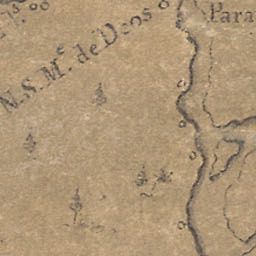 N.S.M.ᵉ de Deos
Para